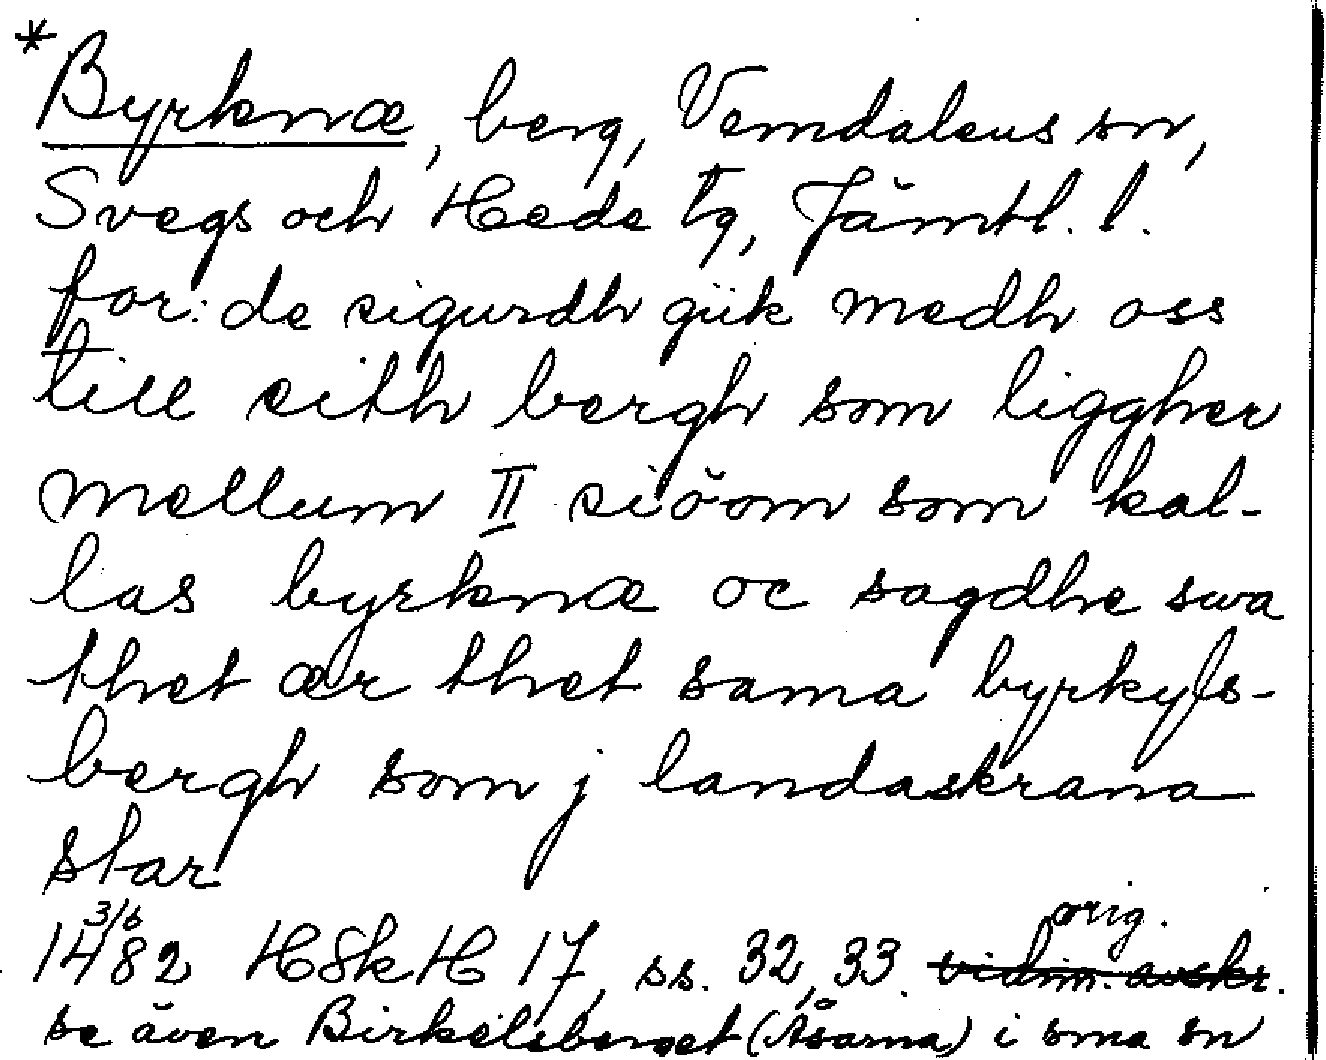 *Byrknæ, berg, Vemdalens sn,
Svegs och Hede tg, Jämtl. l.
for: de sigurdh gik medh oss
till eith bergh som liggher
mellum II siöom som kal-
las byrknæ oc sagdhe swa
thet ær thet sama byrkyls-
bergh som j landaskrana
star
1482 3/6 HSkH 17, ss. 32, 33. orig. vidim. avskr.
se även Birkelsberget (Åsarna) i sma sn